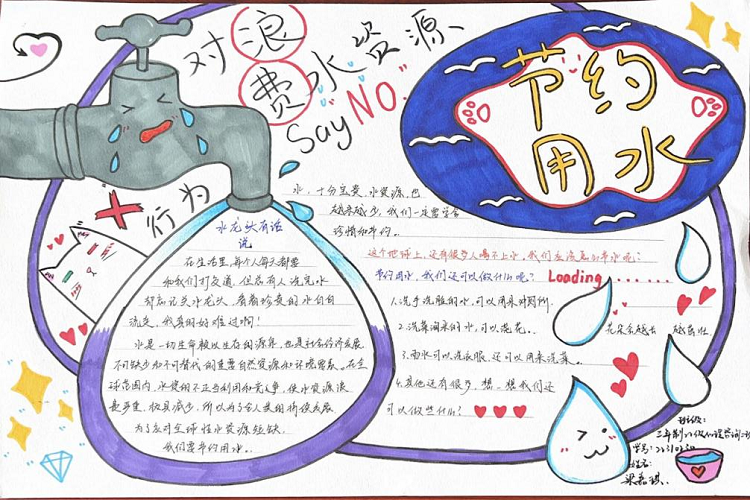 对浪
费水资源
say "NO"
节约
用水
行为
水龙头有话
说
在生活里,每个人每天都要
和我们打交道,但总有人洗完水
却忘记关水龙头,看着珍贵的水白白
流走,我真的好难过啊!
水是一切生命赖以生存的源泉,也是社会经济发展
不可缺少和不可替代的重要自然资源和环境要素。在全
球范围内,水资源的不正当利用和
是严重,极具减少,所以为了人类的持续发展
为了应对全球性水资源短缺,
我们要节约用水。
水,十分宝贵,水资源也
越来越少,我们一定要学会
珍惜和节约。
这个地球上,还有很多人喝不上水,我们应该怎么节水呢?
节约用水,我们还可以做什么呢? Loading......
1.洗手洗脸的水,可以用来冲厕所.
2.洗菜淘米的水,可以浇花。
花朵会越长 越茁壮
3.雨水可以洗衣服,还可以用来洗菜。
4.其他还有很多,想一想我们还
可以做些什么!
班级:
学号:
姓名: